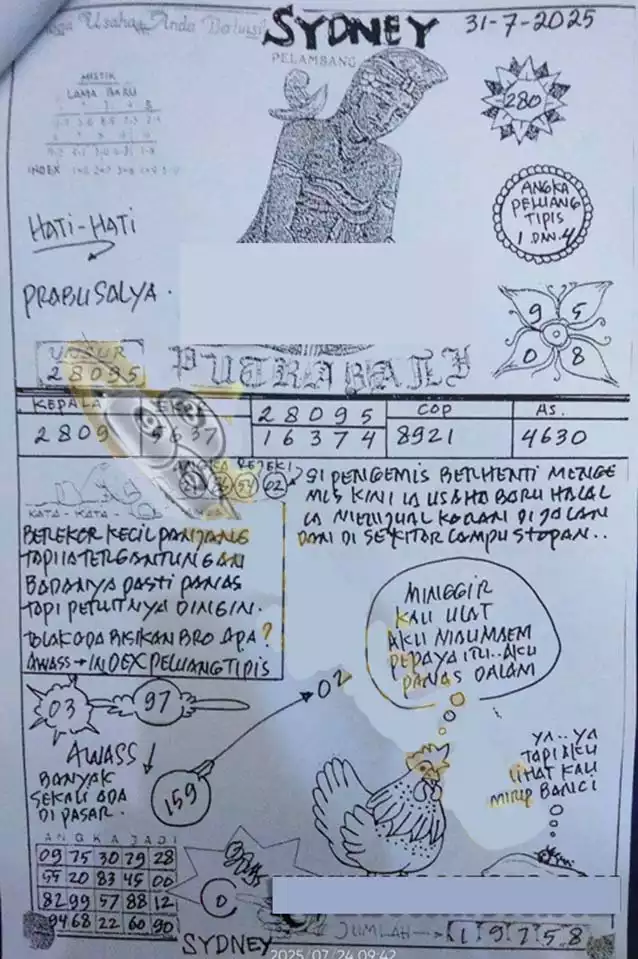 Usaha Anda
SYDNEY 31-7-2025
PELAMBANG
MISTIK
LAMA BARU
INDEX
280
ANGKA
PELUANG
TIPIS
1 DAN 4
HATI-HATI
PRABU SALYA.
9 5
0 8
UNSUR
28095
PUTRA BALI
KEPALA
2809 5637
28095
16374
COP
8921
AS.
4630
REJEKI
02
KATA - KATA
SI PENGEMIS BERHENTI MENGE
MIS KINI IA USAHA BARU HALAL
IA MENJUAL KORAN DI JALAN
DAN DI SEKITAR LAMPU STOPAN..
BEREKOR KECIL PANJANG
TAPI IA TERGANTUNGAN
BADANYA PASTI PANAS
TAPI PERUTNYA DINGIN.
APA?
AWASS → INDEX PELUANG TIPIS
MINGGIR
KAU ULAT
AKU MAEM
PEPAYA ITU..AKU
PANAS DALAM
03
97
02
159
AWASS
BANYAK
SEKALI ADA
DI PASAR.
YA..YA
TAPI AKU
LIHAT KAU
MIRIP BANCI
ANGKA JADI
09 75 30 29 28
55 20 83 45 00
82 99 57 88 12
94 68 22 60 90
0
SYDNEY
JUMLAH
1 9 7 5 8
2025/07/24 09:42